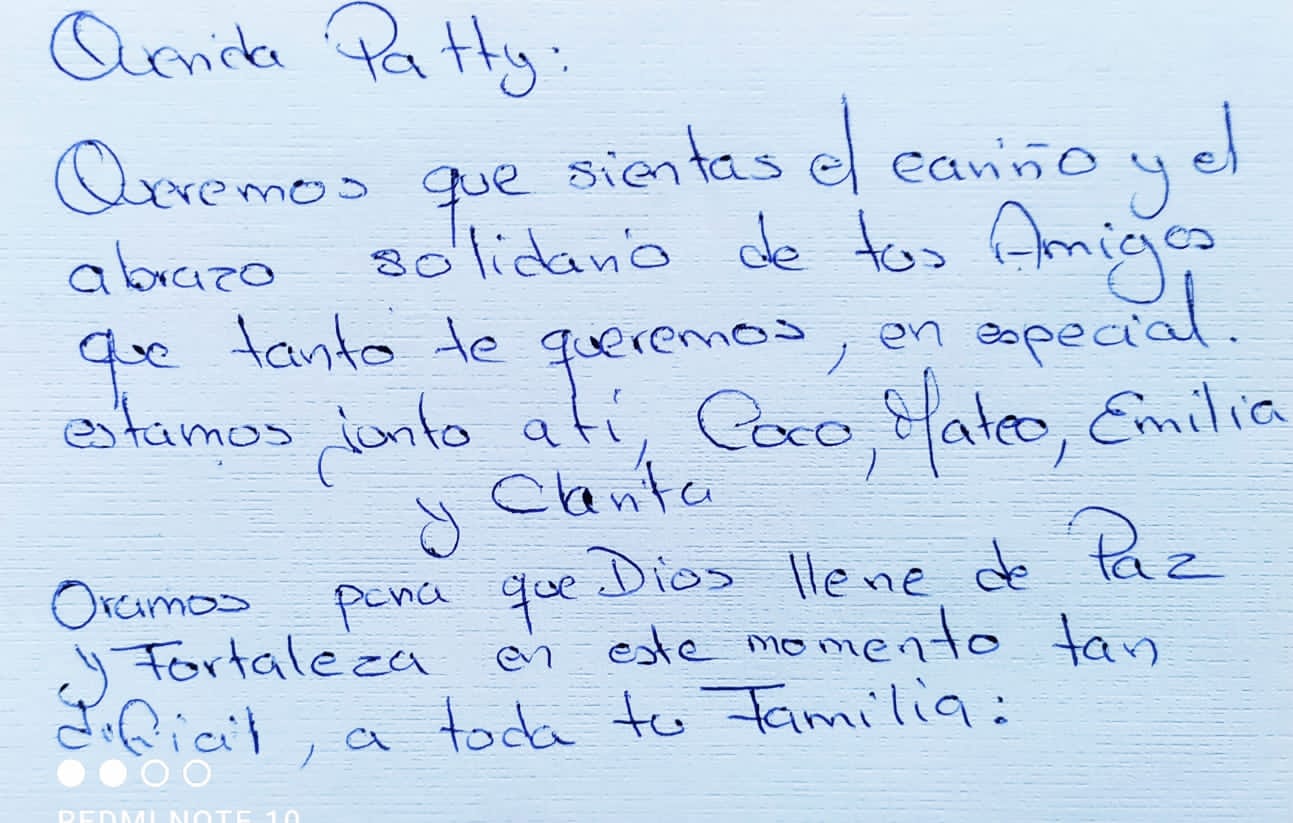 Querida Patty:
Queremos que sientas el cariño y el
abrazo solidario de tus Amigos
que tanto te queremos, en especial.
estamos junto a ti, Coco, Mateo, Emilia
y Clarita
Oramos para que Dios llene de Paz
y Fortaleza en este momento tan
dificil, a toda tu Familia:
REDMI NOTE 10